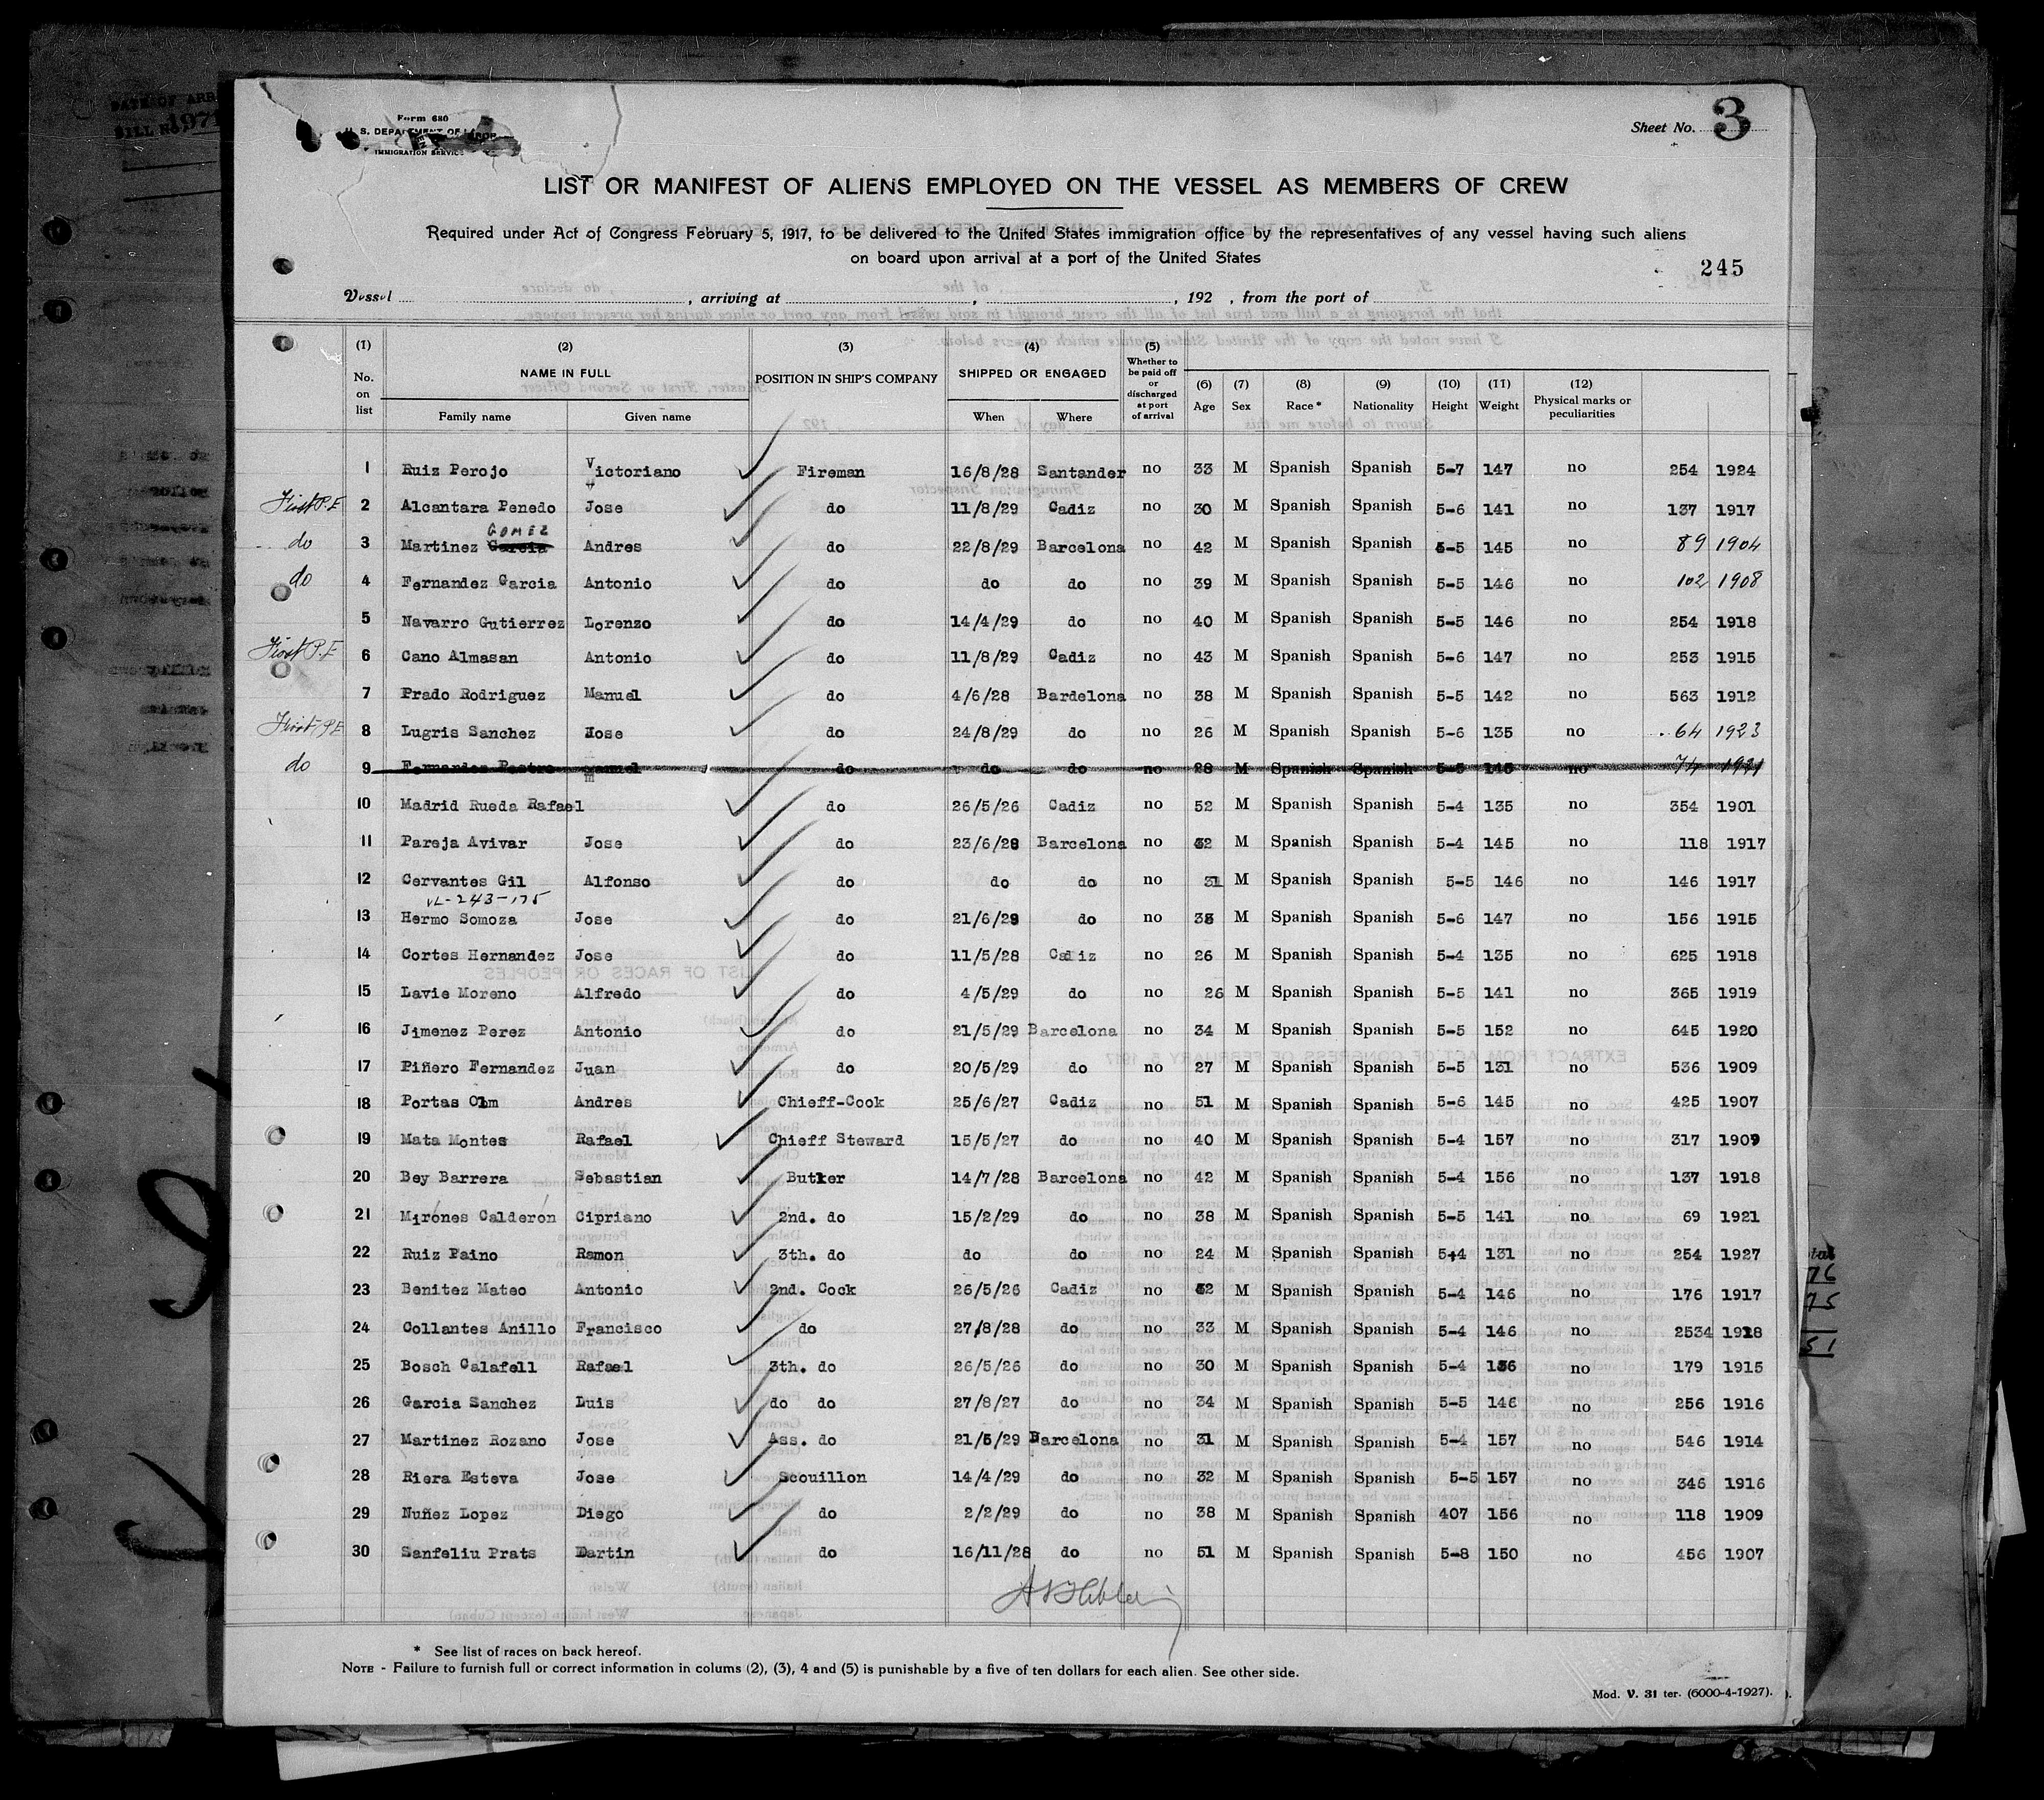 Form 680
U. S. DEPARTMENT OF LABOR
IMMIGRATION SERVICE
Sheet No. 3
LIST OR MANIFEST OF ALIENS EMPLOYED ON THE VESSEL AS MEMBERS OF CREW
Required under Act of Congress February 5, 1917, to be delivered to the United States immigration office by the representatives of any vessel having such aliens
on board upon arrival at a port of the United States
245
Vessel , arriving at , , 192 , from the port of
(1) No. on list (2) NAME IN FULL Family name Given name (3) POSITION IN SHIP'S COMPANY (4) SHIPPED OR ENGAGED When Where (5) Whether to be paid off or discharged at port of arrival (6) Age (7) Sex (8) Race* (9) Nationality (10) Height (11) Weight (12) Physical marks or peculiarities
1 Ruiz Perojo Victoriano Fireman 16/8/28 Santander no 33 M Spanish Spanish 5-7 147 no 254 1924
First P.E 2 Alcantara Penedo Jose do 11/8/29 Cadiz no 30 M Spanish Spanish 5-6 141 no 137 1917
GOMEZ
do 3 Martinez Garcia Andres do 22/8/29 Barcelona no 42 M Spanish Spanish 5-5 145 no 89 1904
do 4 Fernandez Garcia Antonio do do do no 39 M Spanish Spanish 5-5 146 no 102 1908
5 Navarro Gutierrez Lorenzo do 14/4/29 do no 40 M Spanish Spanish 5-5 146 no 254 1918
First P.E 6 Cano Almasan Antonio do 11/8/29 Cadiz no 43 M Spanish Spanish 5-6 147 no 253 1915
7 Prado Rodriguez Manuel do 4/6/28 Bardelona no 38 M Spanish Spanish 5-5 142 no 563 1912
First P.E 8 Lugris Sanchez Jose do 24/8/29 do no 26 M Spanish Spanish 5-6 135 no 64 1923
do 9 Fernandez Manuel do do do no 28 M Spanish Spanish 5-5 145 no 74 1921
10 Madrid Rueda Rafael do 26/5/26 Cadiz no 52 M Spanish Spanish 5-4 135 no 354 1901
11 Pareja Avivar Jose do 23/6/28 Barcelona no 32 M Spanish Spanish 5-4 145 no 118 1917
12 Cervantes Gil Alfonso do do do no 31 M Spanish Spanish 5-5 146 no 146 1917
VL-243-175
13 Hermo Somoza Jose do 21/6/29 do no 38 M Spanish Spanish 5-6 147 no 156 1915
14 Cortes Hernandez Jose do 11/5/28 Cadiz no 26 M Spanish Spanish 5-4 135 no 625 1918
15 Lavie Moreno Alfredo do 4/5/29 do no 26 M Spanish Spanish 5-5 141 no 365 1919
16 Jimenez Perez Antonio do 21/5/29 Barcelona no 34 M Spanish Spanish 5-5 152 no 645 1920
17 Piñero Fernandez Juan do 20/5/29 do no 27 M Spanish Spanish 5-5 131 no 536 1909
18 Portas Olm Andres Chieff-Cook 25/6/27 Cadiz no 51 M Spanish Spanish 5-6 145 no 425 1907
19 Mata Montes Rafael Chieff Steward 15/5/27 do no 40 M Spanish Spanish 5-4 157 no 317 1909
20 Bey Barrera Sebastian Butker 14/7/28 Barcelona no 42 M Spanish Spanish 5-4 156 no 137 1918
21 Mirones Calderon Cipriano 2nd. do 15/2/29 do no 38 M Spanish Spanish 5-5 141 no 69 1921
22 Ruiz Paino Ramon 3th. do do do no 24 M Spanish Spanish 5+4 131 no 254 1927
23 Benitez Mateo Antonio 2nd. Cock 26/5/26 Cadiz no 52 M Spanish Spanish 5-4 146 no 176 1917
24 Collantes Anillo Francisco do 27/8/28 do no 33 M Spanish Spanish 5-4 146 no 2534 1918
25 Bosch Calafell Rafael 3th. do 26/5/26 do no 30 M Spanish Spanish 5-4 136 no 179 1915
26 Garcia Sanchez Luis do do 27/8/27 do no 34 M Spanish Spanish 5-5 146 no 256 1916
27 Martinez Rozano Jose Ass. do 21/5/29 Barcelona no 31 M Spanish Spanish 5-4 157 no 546 1914
28 Riera Esteva Jose Scouillon 14/4/29 do no 32 M Spanish Spanish 5-5 157 no 346 1916
29 Nuñez Lopez Diego do 2/2/29 do no 38 M Spanish Spanish 407 156 no 118 1909
30 Sanfeliu Prats Martin do 16/11/28 do no 51 M Spanish Spanish 5-8 150 no 456 1907
* See list of races on back hereof.
NOTE - Failure to furnish full or correct information in colums (2), (3), 4 and (5) is punishable by a five of ten dollars for each alien. See other side.
Mod. V. 31 ter. (6000-4-1927).